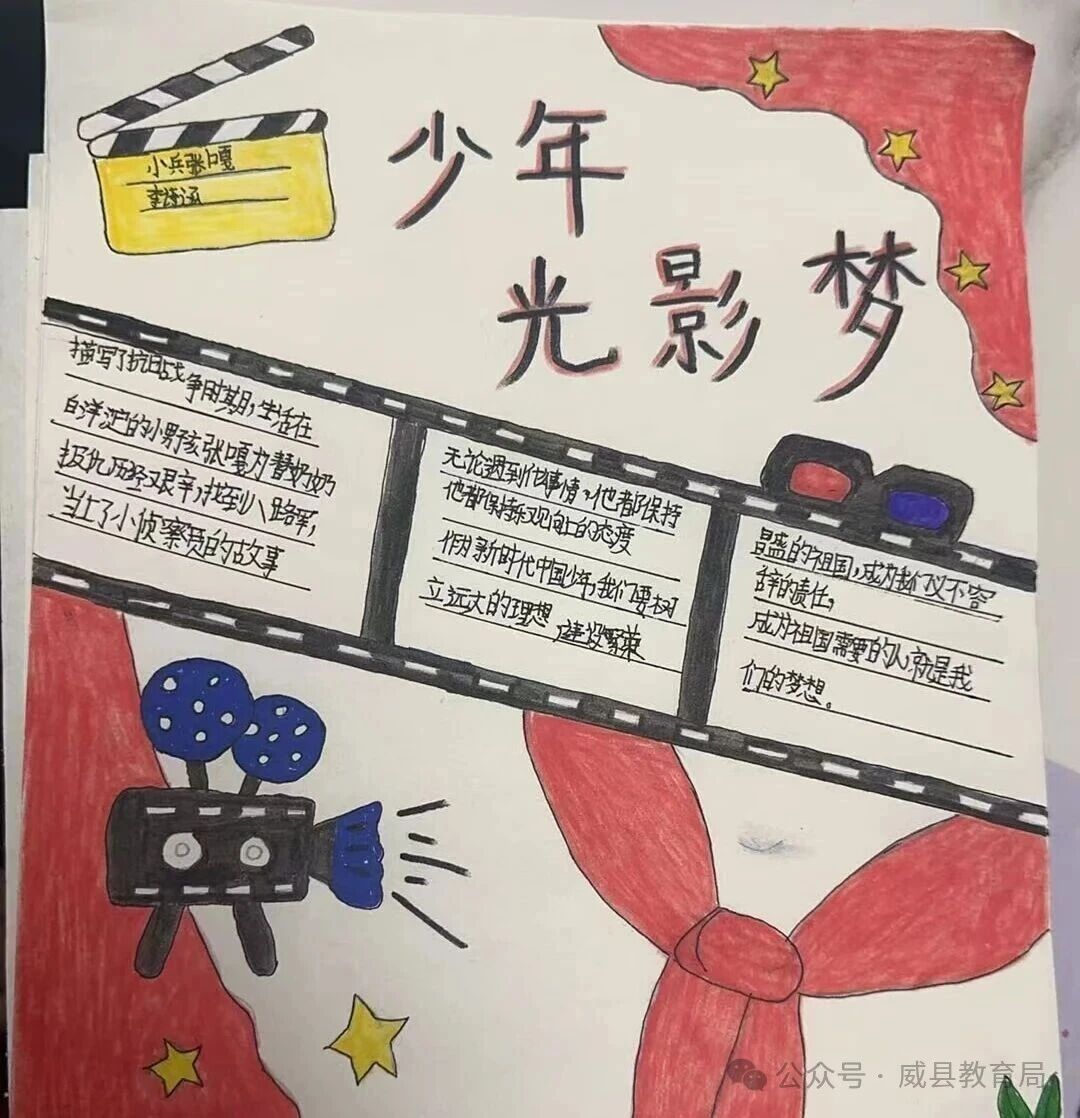 小兵张嘎
李诗涵
少年
光影梦
描写了抗日战争时期，生活在
白洋淀的小男孩张嘎为替奶奶
报仇历经艰辛，找到八路军，
当上了小侦察员的故事
无论遇到什么事情，他都保持
他都保持乐观向上的态度
作为新时代中国少年，我们要树
立远大的理想 建设繁荣
昌盛的祖国，成为我们义不容
辞的责任，
成为祖国需要的人就是我
们的梦想。
公众号·威县教育局